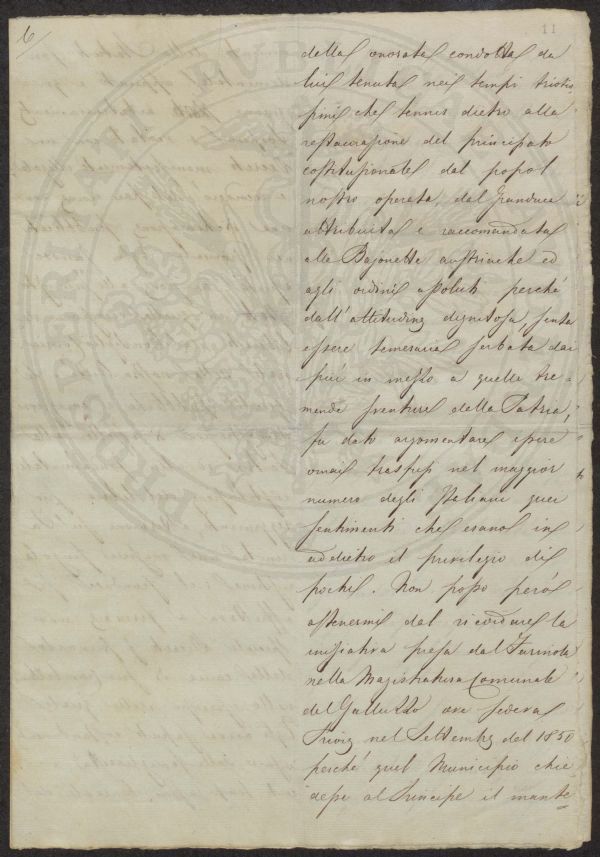 6
11
della onorata condotta da
lui tenuta nei tempi tristis
simi che tennero dietro alla
restaurazione del principato
costituzionale dal popol
nostro operata, dal Granduca
attribuita e raccomandata
alle Bajonette austriache ed
agli ordini assoluti perché
dall'attitudine dignitosa, senza
essere temeraria serbata dai
più in mezzo a quelle tre=
mende sventure della Patria,
fu dato argomentare essere
omai trasfusi nel maggior
numero degli Italiani quei
sentimenti che erano in
addietro il privilegio di
pochi. Non posso però
astenermi dal ricordare la
iniziativa presa dal
nella Magistratura Comunale
del Galluzzo ove sedeva
nel Settembre del 1850
perché quel Municipio chie
desse al Principe il mante=